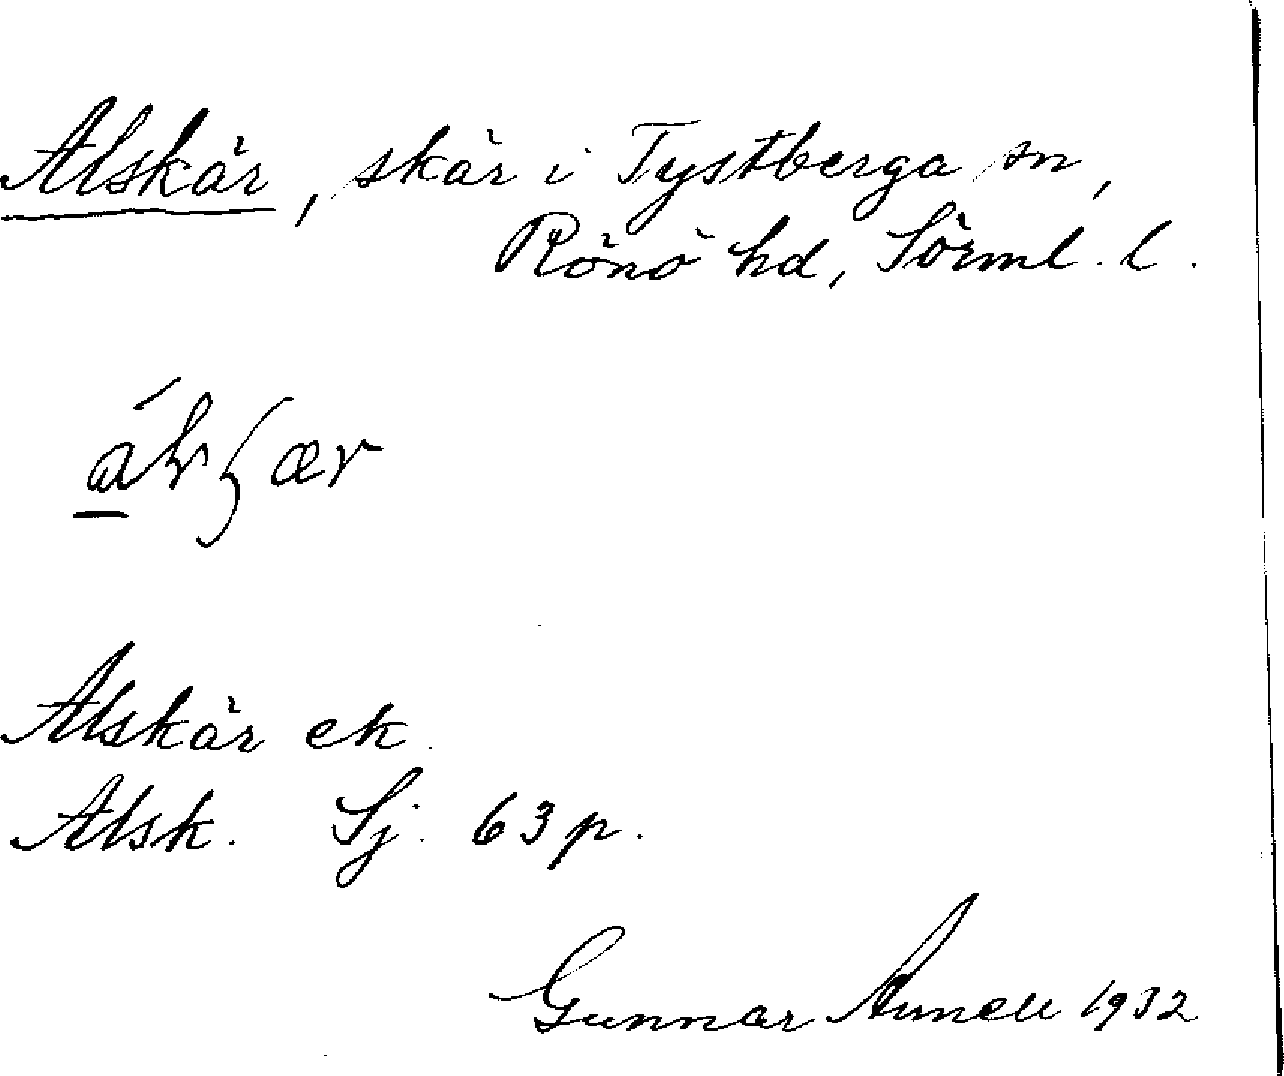 Alskär, skär i Tystberga sn,
Rönö hd, Sörml. l.
Alskär ek.
Alsk. Sj. 63 p.
Gunnar 1932